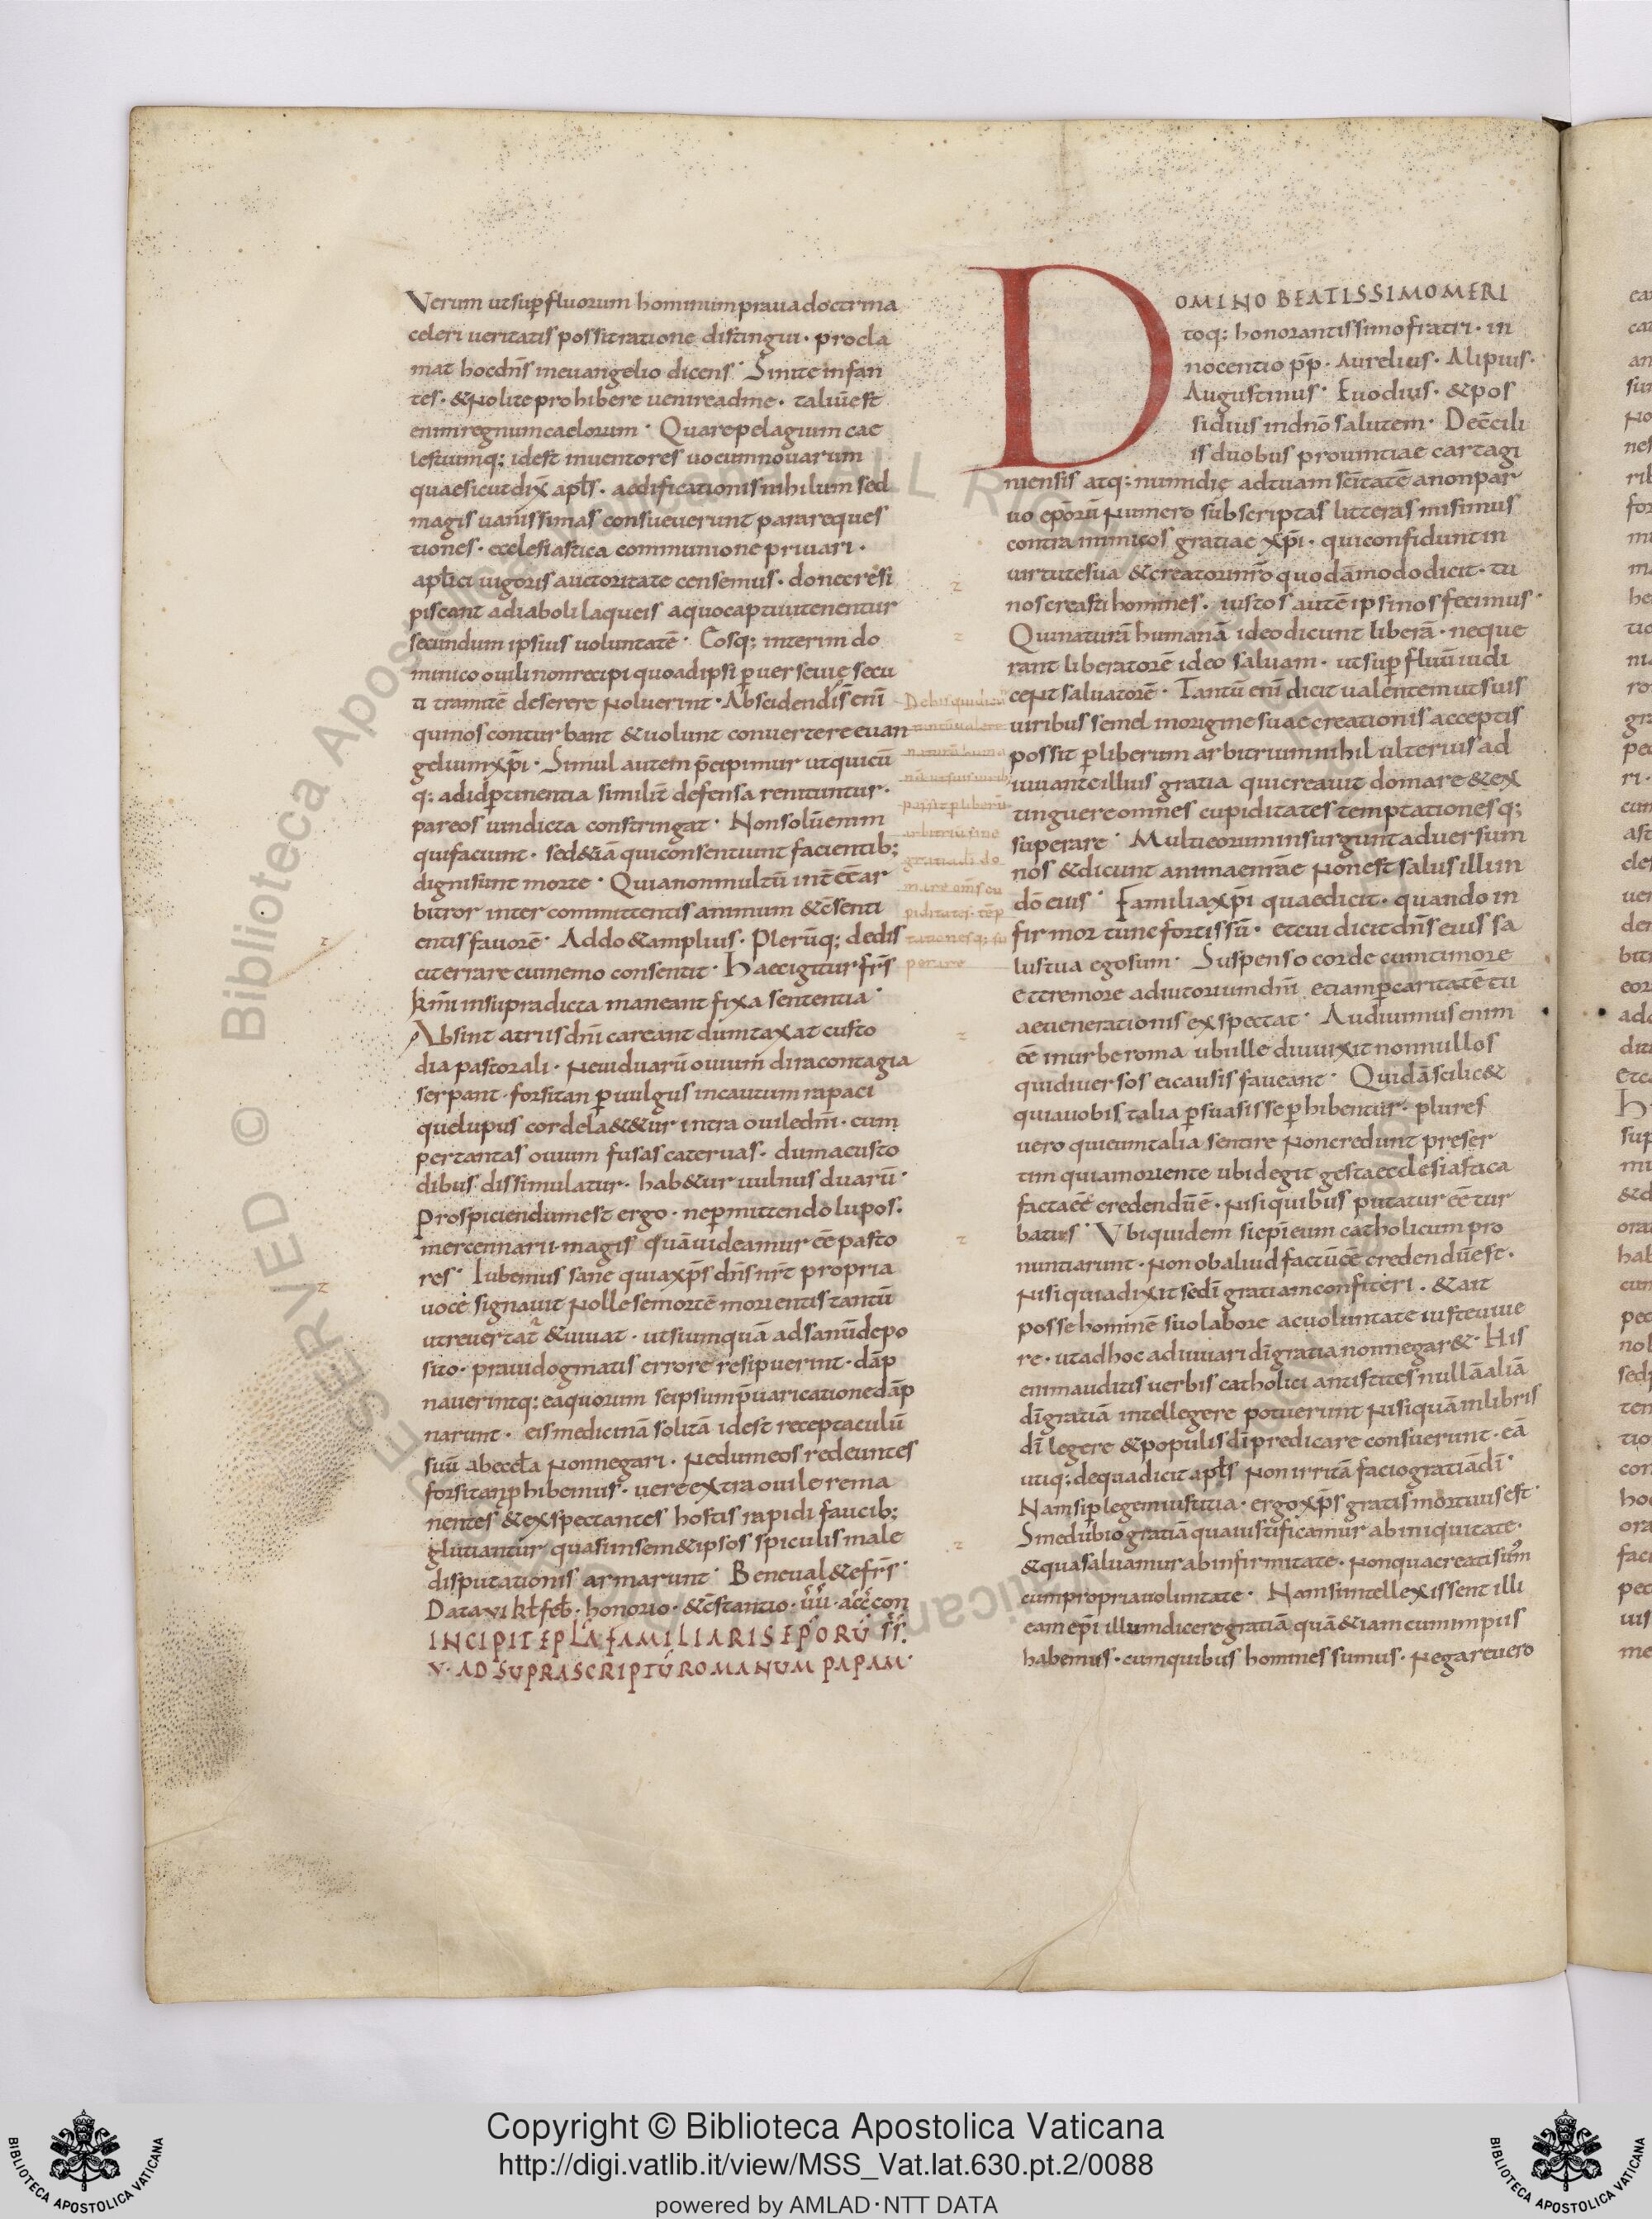 Verum utsup̄fluorum hominumprauadoctrina
celeri ueritatis possitratione distingui · procla
mat hocdn̄s ineuangelio dicens · Sinite infan
tes · &nolite prohibere uenireadme · taliūest
enimregnumcaelorum · Quarepelagium cae
lestiumq; idest inuentores uocumnouarum
quaesicutdix̄ apl̄s · aedificationisnihilum sed
magis uanissimas consueuerunt parareques
tiones · ecclesiastica communione priuari ·
apl̄ici uigoris auctoritate censemus · donecresi
piscant adiaboli laqueis aquocaptiuitenentur
secundum ipsius uoluntatē · Eosq; interim do
minico ouili nonrecipi quoadipsi p̄uerseuię secu
ti tramitē deserere noluerint · Abscidendis̄ enī
quinos conturbant &uolunt conuertere euan
geliumxp̄i · Simul autem p̄cipimur utquicū
q; adidp̄tinentia similit̄ defensa renituntur ·
pareos uindicta constringat · Nonsolūenim
quifaciunt · sed&iā quiconsentiunt facientib;
dignisunt morte · Quianonmultū int̄ēē ar
bitror inter committentis animum &c̄senti
entis fauorē · Addo&amplius · Plerūq; dedis
citerrare cuinemo consentit · Haecigiturfr̄s
km̄i insupradicta maneant fixa sententia ·
Absint atriisdn̄i careant dumtaxat custo
dia pastorali · neuiduarū ouium diracontagia
serpant · forsitan p̄ uulgus incautum rapaci
quelupus cordela&&ur intra ouiledn̄i · cum
pertantas ouium fusas cateruas · dumacusto
dibus dissimulatur · hab&ur uulnus duarū ·
Prospiciendumest ergo · nep̄mittendo lupos ·
mercennarii magis quāuideamur ēē pasto
res · Iubemus sane quiaxp̄s dn̄s nr̄t propria
uoce signauit nolle semortē morientis tantū
utreuertat̄ &uiuat · utsiumquā adsanūdepo
sito · prauidogmatis errore resipuerint · dāp
nauerintq; eaquorum seipsump̄uaricationedāp
narunt · eismedicinā solitā idest receptaculū
suū abeccl̄a nonnegari · nedumeos redeuntes
forsitanp̄hibemus · uereextraouile rema
nentes &exspectantes hostis rapidi faucib;
glutiantur quasiinsem&ipsos spiculis male
disputationis armarunt · Beneual&efr̄s ·
Data vi kl̄ feb̄ · honorio · &c̄stantio · ūū · ac̄c̄con
INCIPIT EPL̄A FAMILIARIS EPORŪ S̄S̄.
V · AD SUPRASCRIPTŪ ROMANUM PAPAM ·
Debisquidicunt
tantūualere
naturā huma
nā utsuisuirib;
possit p̄liberū
arbitriū sine
gratiadī do
mare oms̄ cu
piditates · tēp
tationesq; su
perare
DOMINO BEATISSIMOMERI
toq; honorantissimofratri · in
nocentio pp̄ · Aurelius · Alipius ·
Augustinus · Euodius · &pos
sidius indnō salutem · Dec̄cili
is duobus prouintiae cartagi
niensis atq; numidię adtuam sc̄itatē anonpar
uo epōrū numero subscriptas litteras misimus
contra inimicos gratiae xp̄i · quiconfiduntin
uirtutesua &creatorinr̄o quodāmododicit · tu
noscreasti homines · iustos autē ipsinosfecimus ·
Quinaturā humanā ideodicunt liberā · neque
rant liberatorē ideo saluam · utsup̄fluū iudi
cent saluatorē · Tantū enī dicit ualentemutsuis
uiribus semel inorigine suae creationis acceptis
possit p̄liberum arbitriumnihil ulterius ad
iuuanteillius gratia quicreauit domare &ex
tinguereomnes cupiditates temptationesq;
superare · Multieoruminsurguntaduersum
nos &dicunt animaenr̄ae nonest salusilliin
dō eius · Familiaxp̄i quaedicit · quando in
firmor tunc fortissū · etcui dicit dn̄s eius sa
lustua egosum · Suspenso corde cumtimore
ettremore adiutoriumdn̄i etiamp̄caritatē tu
aeuenerationis exspectat · Audiuimus enim
ēē inurberoma ubiillediuuixit nonnullos
quidiuersos eicausis faueant · Quidāscilic&
quiauobis talia p̄suasisse p̄hibentur · plures
uero quieumtalia sentire noncredunt preser
tim quiamoriente ubidegit gestaecclesiastica
factaēē credendūē · nisi quibus putatur ēē tur
batus · Vbiquidem siepīeum catholicum pro
nuntiarunt · non obaliud factūēē credendūest ·
nisi quiadixit sedī gratiamconfiteri · &ait
possehominē suolabore acuoluntate iusteuiue
re · utadhoc adiuuari dīgratianonnegar& · His
enimauditis uerbis catholici antistites nullāaliā
dīgratiā intellegere potuerunt nisiquāinlibris
dī legere &populisdīpredicare consuerunt · eā
utiq; dequadicit apl̄s non irritā faciogratiādī ·
Namsip̄legemiustitia · ergo xp̄s gratis mortuusest ·
Sinedubiogratiāquaiustificamur abiniquitate ·
&quasaluamurabinfirmitate · nonquacreatisum̄
cumpropriauoluntate · Namsiintellexissent illi
eam ep̄i illumdiceregratiā quā&iam cumimpiis
habemus · cumquibus homines sumus · negareuero
Copyright © Biblioteca Apostolica Vaticana
http://digi.vatlib.it/view/MSS_Vat.lat.630.pt.2/0088
powered by AMLAD·NTT DATA